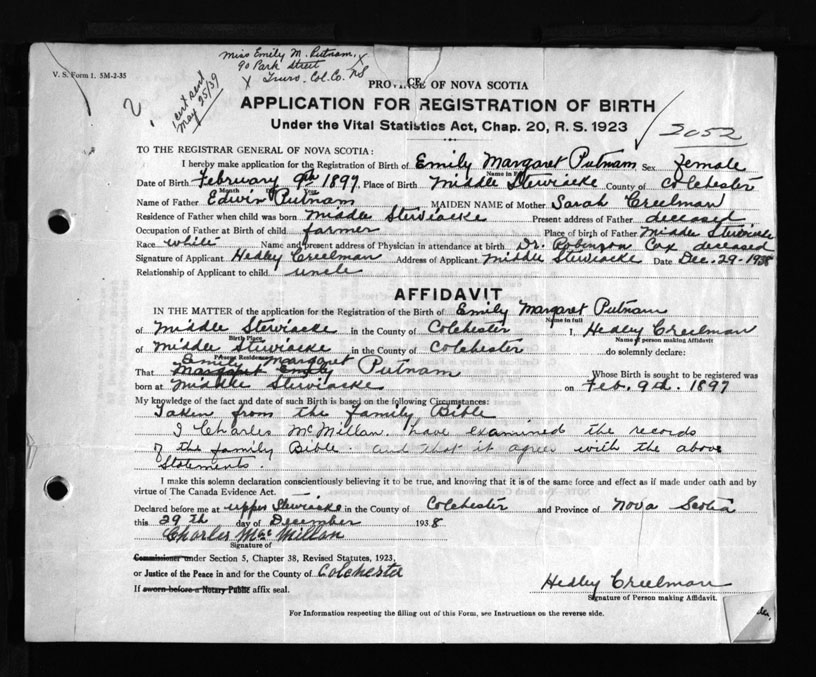 Miss Emily M. Putnam. X
90 Park Street
X Truro. Col. Co. NS
V. S. Form 1. 5M-2-35
cert sent
May 25/39
PROVINCE OF NOVA SCOTIA
APPLICATION FOR REGISTRATION OF BIRTH
Under the Vital Statistics Act, Chap. 20, R. S. 1923
3052
TO THE REGISTRAR GENERAL OF NOVA SCOTIA:
I hereby make application for the Registration of Birth of Emily Margaret Putnam Sex Female
Name in Full
Date of Birth February 9th 1897. Place of Birth Middle Stewiacke County of Colchester
Month Day Year
Name of Father Edwin Putnam MAIDEN NAME of Mother Sarah Creelman
Residence of Father when child was born Middle Stewiacke Present address of Father deceased
Occupation of Father at Birth of child farmer Place of birth of Father Middle Stewiacke
Race white Name and present address of Physician in attendance at birth Dr. Robinson Cox deceased
Signature of Applicant Hedley Creelman Address of Applicant Middle Stewiacke Date Dec. 29 - 1938
Relationship of Applicant to child uncle
AFFIDAVIT
IN THE MATTER of the application for the Registration of the Birth of Emily Margaret Putnam
Name in full
of Middle Stewiacke in the County of Colchester I, Hedley Creelman
Birth Place Name of person making Affidavit
of Middle Stewiacke in the County of Colchester do solemnly declare:
Present Residence
Emily Margaret
That Margaret Emily Putnam Whose Birth is sought to be registered was
born at Middle Stewiacke on Feb. 9th. 1897
My knowledge of the fact and date of such Birth is based on the following Circumstances:
Taken from the Family Bible
I Charles McMillan. have examined the records
of the family Bible. and that it agree with the above
Statements.
I make this solemn declaration conscientiously believing it to be true, and knowing that it is of the same force and effect as if made under oath and by
virtue of The Canada Evidence Act.
Declared before me at upper Stewiacke in the County of Colchester and Province of Nova Scotia
this 29th day of December 1938
Charles MacMillan
Signature of
Commissioner under Section 5, Chapter 38, Revised Statutes, 1923,
or Justice of the Peace in and for the County of Colchester
If sworn before a Notary Public affix seal.
Hedley Creelman
Signature of Person making Affidavit.
For Information respecting the filling out of this Form, see Instructions on the reverse side.